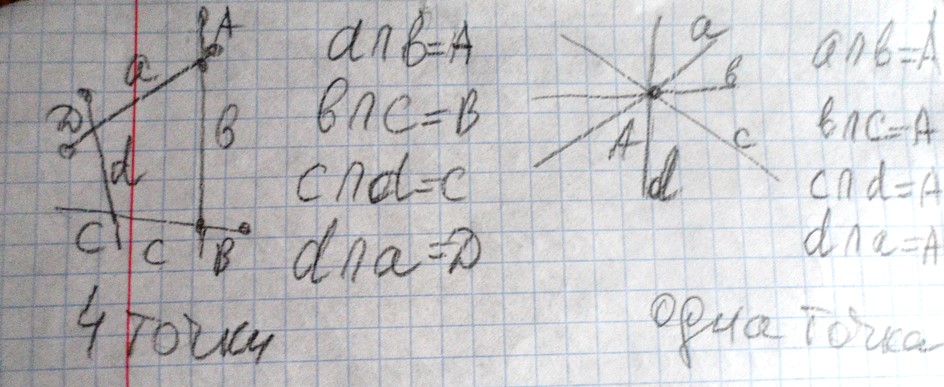 A
a
D
d
b
C
c
B
a∩b=A
b∩c=B
c∩d=C
d∩a=D
4 точки
a
b
c
A
d
a∩b=A
b∩c=A
c∩d=A
d∩a=A
одна точка